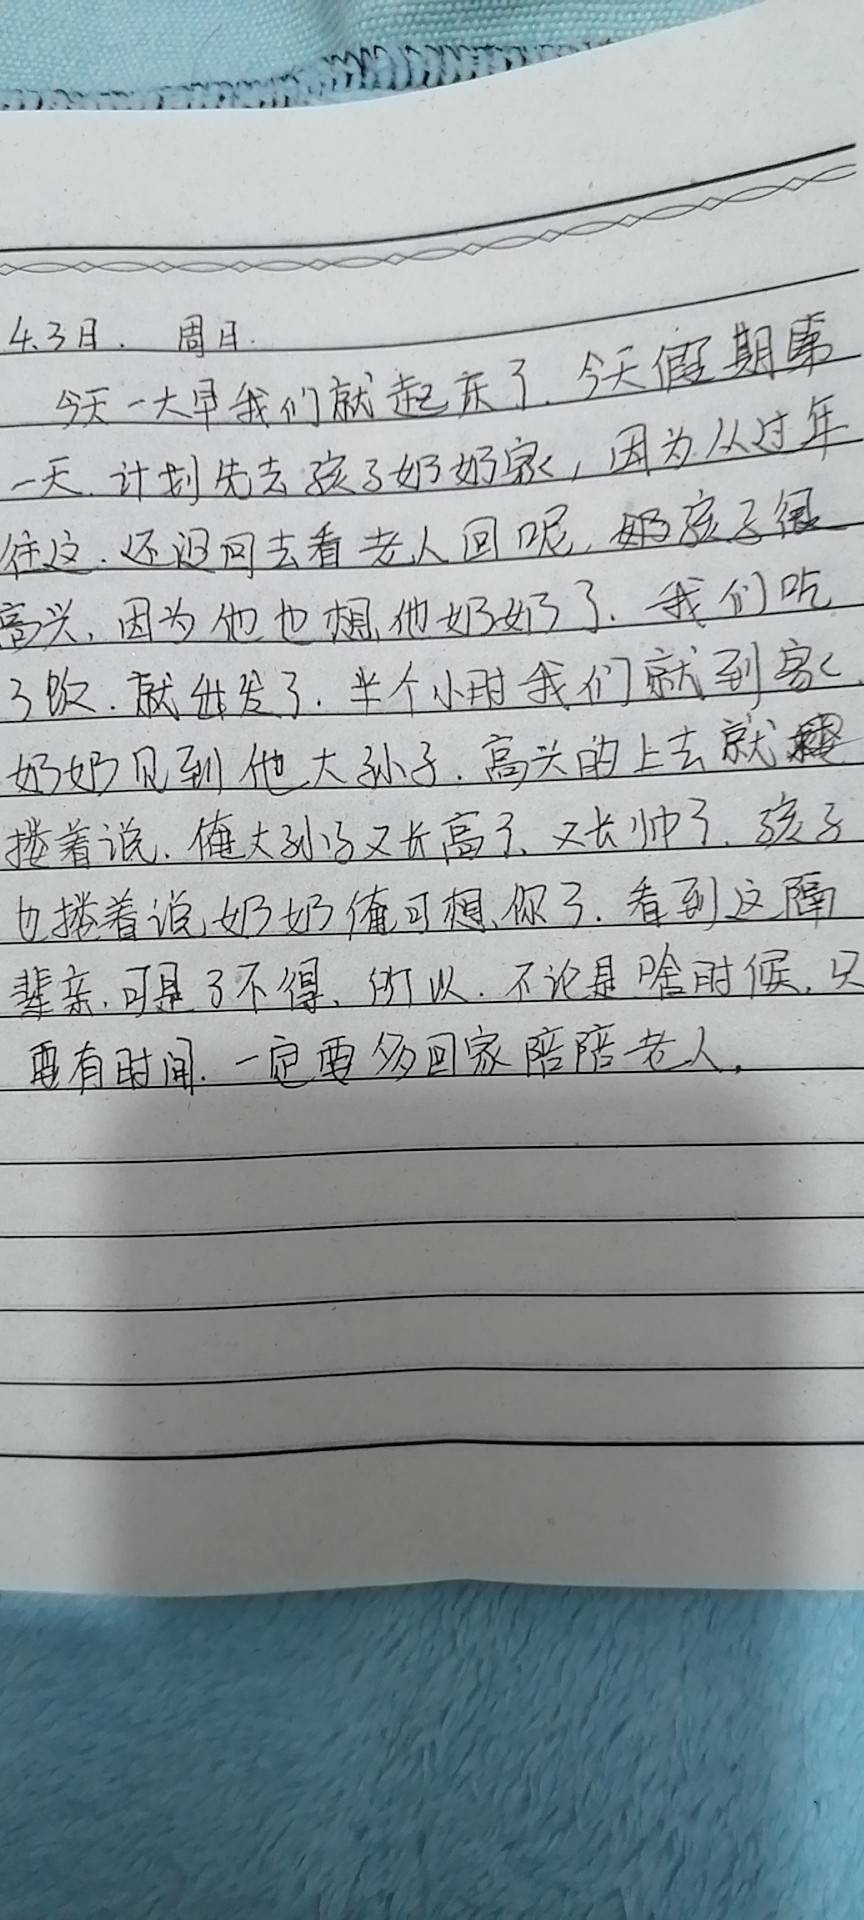 4.3日. 周日.
今天一大早我们就起床了.今天假期第
一天.计划先去孩子奶奶家,因为从过年
往这.还没回去看老人回呢,孩子很
高兴,因为他也想他奶奶了.我们吃
了饭.就出发了.半个小时我们就到家.
奶奶见到他大孙子.高兴的上去就
搂着说.俺大孙子又长高了.又长帅了.孩子
也搂着说,奶奶俺可想你了.看到这隔
辈亲,可是了不得,所以.不论是啥时候,只
要有时间.一定要多回家陪陪老人.